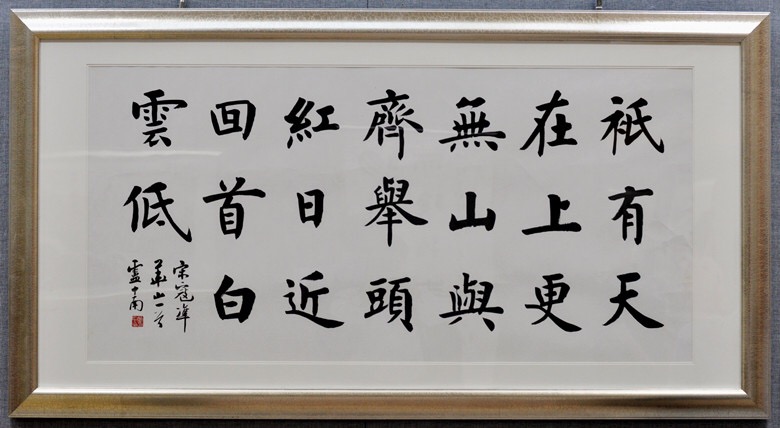 祇有天
在上更
無山與
齊舉頭
紅日近
回首白
雲低
宋寇準
華山一首